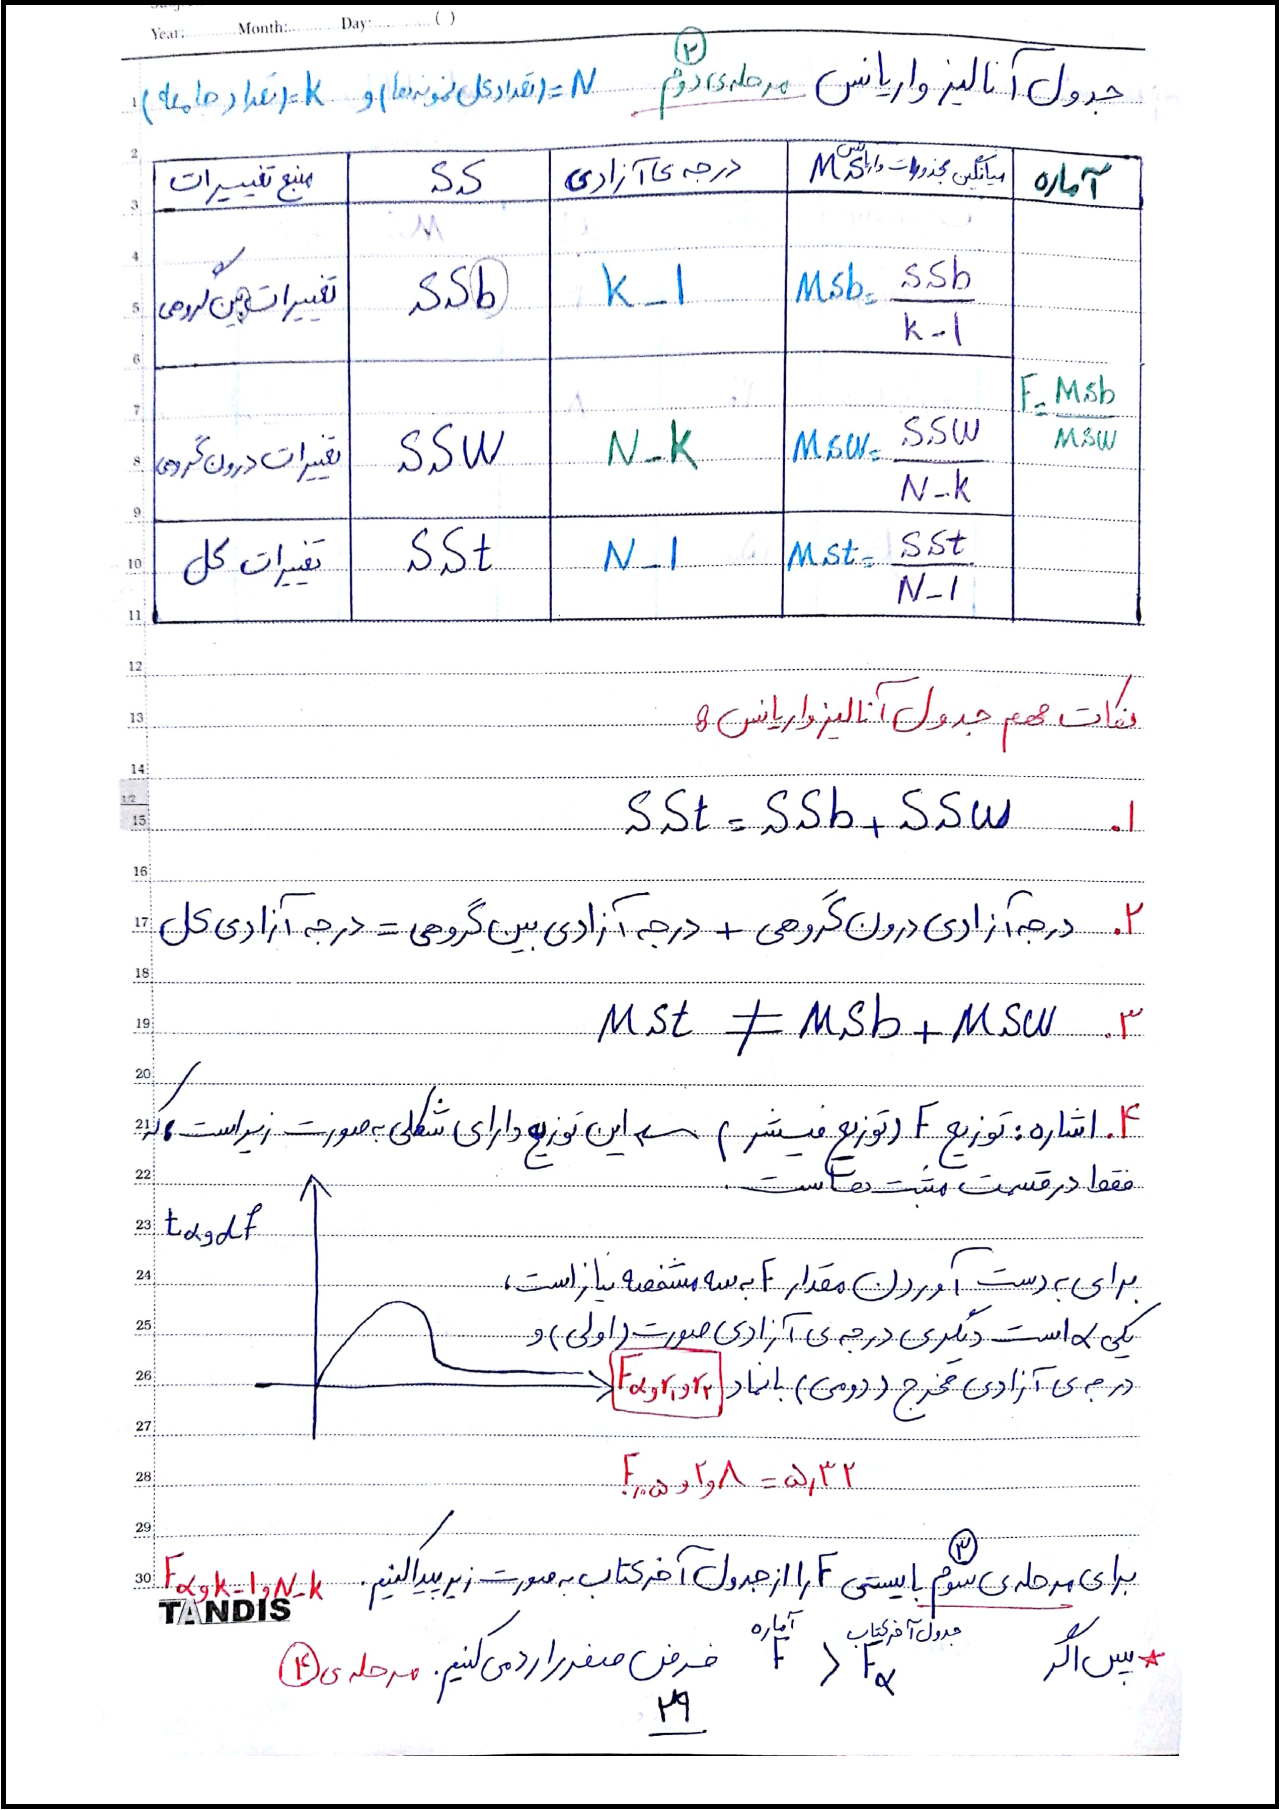 Year: Month: Day: ( )
جدول آنالیز واریانس مرحله‌ی دوم ② N=(تعداد کل نمونه‌ها) و k=(تعداد جامعه)
منبع تغییرات SS درجه‌ی آزادی میانگین مجذورات واریانس MS آماره
تغییرات بین گروهی SSb k-1 MSb= SSb/k-1
F= MSb/MSW
تغییرات درون گروهی SSW N-k MSW= SSW/N-k
تغییرات کل SSt N-1 MSt= SSt/N-1
نکات مهم جدول آنالیز واریانس:
۱. SSt = SSb + SSW
۲. درجه آزادی درون گروهی + درجه آزادی بین گروهی = درجه آزادی کل
۳. MSt ≠ MSb + MSW
۴. اشاره: توزیع F (توزیع فیشر) ← این توزیع دارای شکلی به صورت زیر است که
فقط در قسمت مثبت هاست.
tα و df
برای به دست آوردن مقدار F به سه مشخصه نیاز است،
یکی α است دیگری درجه‌ی آزادی صورت (اولی) و
درجه‌ی آزادی مخرج (دومی) با نماد Fα و r₁ و r₂
F۰٫۰۵ و ۲ و ۸ = ۵٫۳۲
برای مرحله‌ی سوم ③ بایستی F را از جدول آخر کتاب به صورت زیر پیدا کنیم. Fα و k-1 و N-k
TANDIS
* پس اگر Fα جدول آخر کتاب < F آماره فرض صفر را رد می کنیم. مرحله‌ی ④
۲۹